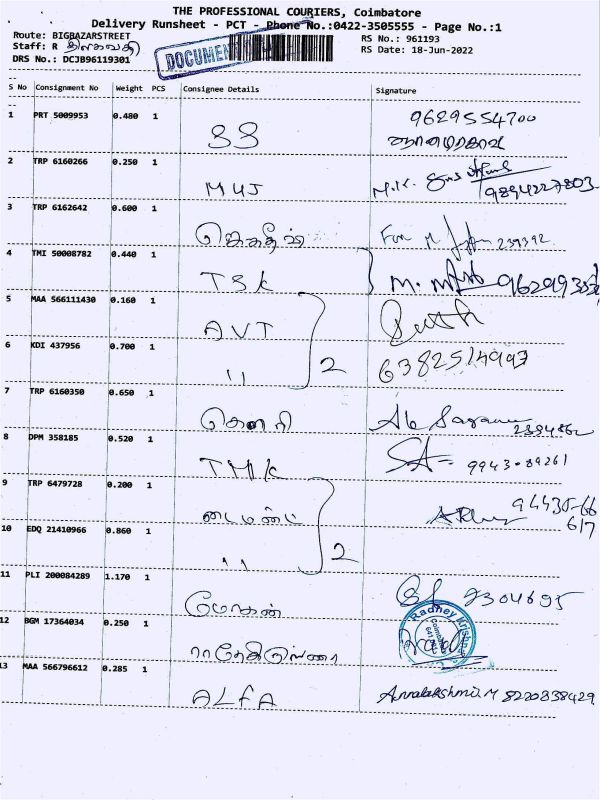 THE PROFESSIONAL COURIERS, Coimbatore
Delivery Runsheet - PCT - Phone No.:0422-3505555 - Page No.:1
Route: BIGBAZARSTREET
RS No.: 961193
Staff: R திலகவதி
RS Date: 18-Jun-2022
DRS No.: DCJB96119301
DOCUMENT
S No Consignment No Weight PCS Consignee Details Signature
1 PRT 5009953 0.480 1
9629554700
33
2 TRP 6160266 0.250 1
M.K.
MUJ 9894227803
3 TRP 6162642 0.600 1
ஜெகதீஸ் For M 239392
4 TMI 50008782 0.440 1
TSK M.
5 MAA 566111430 0.160 1
AVT
6 KDI 437956 0.700 1
" 2
7 TRP 6160350 0.650 1
கௌரி
8 DPM 358185 0.520 1
TMK 9943-89261
9 TRP 6479728 0.200 1
டைமண்ட் 94435-66
617
10 EDQ 21410966 0.860 1
" 2
11 PLI 200084289 1.170 1
மோகன் 2304695
12 BGM 17364034 0.250 1
Radhey Krishna
13 MAA 566796612 0.285 1
ALFA Annalakshmi.M 8220838429